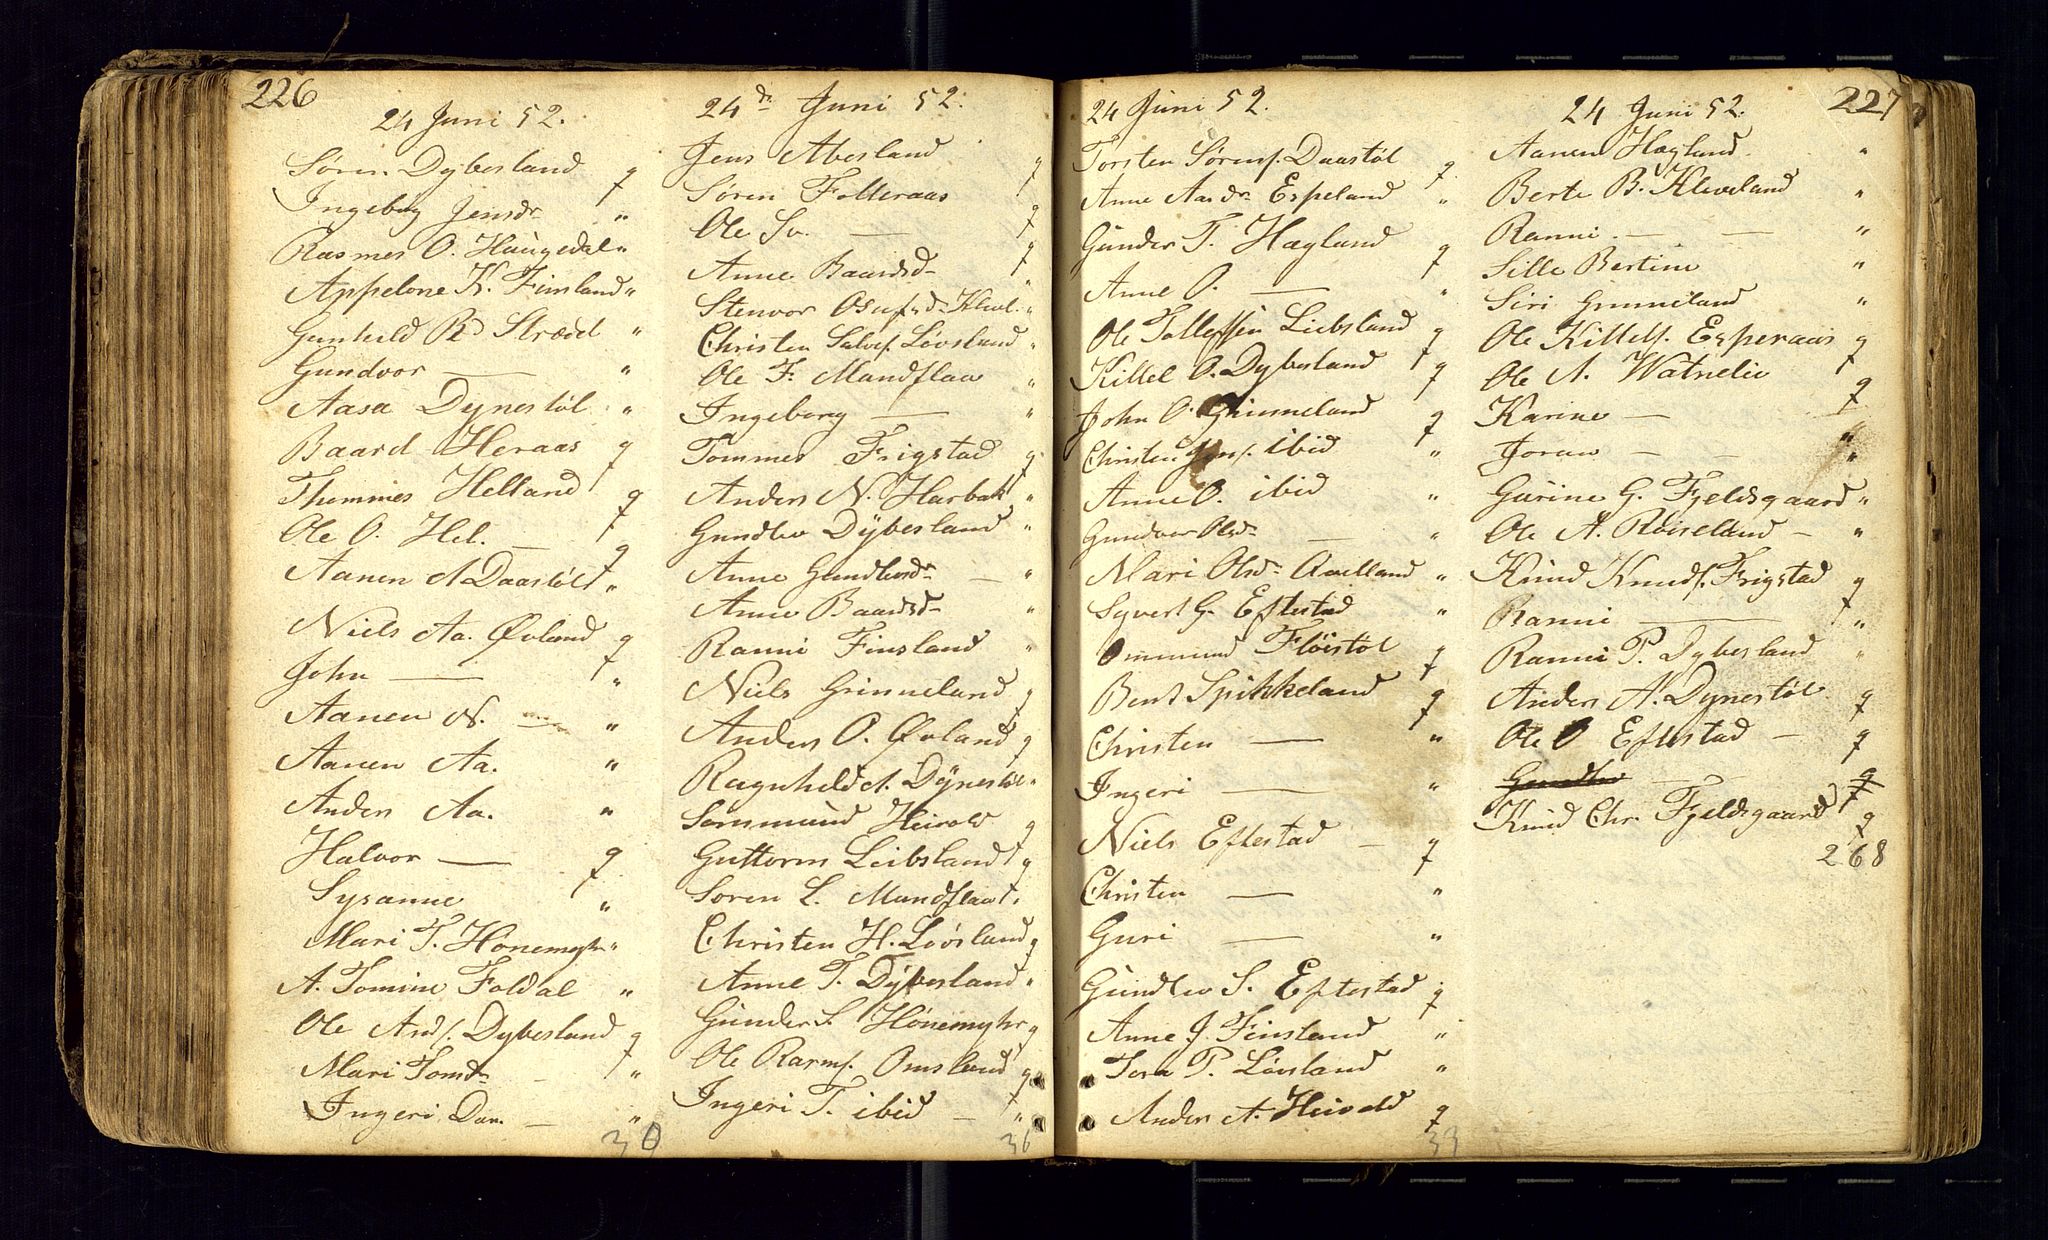 226
24 Juni 52.
Sören Dybesland g
Ingebog Jensdr "
Rasmus O. Haugedal "
Appelone K. Finsland "
Gunhild Rd Strædd "
Gundvor — "
Aasa Dynestöl "
Baard Heraas g
Thommes Helland g
Ole O. Hel. — g
Aanen A Daastöl "
Niels Aa. Øvland g
John — "
Aanen N. — "
Aanen Aa. "
Anders Aa. "
Halvor — g
Sysanne "
Mari T. Hönemyhr "
A. Tomine Foldal "
Ole And. Dybesland g
Mari Tomdr — "
Ingeri Dan. — "
30
24de Juni 52.
Jens Abesland g
Sören Folleraas g
Ole Sv. — g
Anne Baardsd "
Stenvor Osufsd Klevl. "
Christen Salves. Lövsland "
Ole F. Mandflaa "
Ingeborg — "
Tommes Frigstad g
Anders N. Harbak "
Gundlev Dÿbesland "
Anne Gundlevsdr — "
Anne Baardsd "
Ranni Finsland "
Niels Grinneland g
Anders P. Øvland g
Ragnhild A. Dÿnestöl "
Sormmund Heivold g
Guttorm Leibsland g
Soren L. Mandflaa "
Christen H. Lövsland g
Anne T. Dÿbesland "
Gunder S. Hönemyhr g
Ole Rasms. Omsland g
Ingeri T. ibid — "
36
24 Juni 52.
Torsten Sörens. Daastöl g
Anne Aasdr Espeland "
Gunder T. Hægland g
Anne O. — "
Ole Tallefsen Liebsland g
Killel O. Dybesland g
John O. Grinneland g
Christen Jens. ibid "
Anne O. ibid "
Gundvor Olsdr — "
Mari Olsdr Qvelland "
Syvert G. Eftestad "
Ommund Flöistöl g
Bent Spikkeland g
Christen — "
Ingeri — "
Niels Eftestad — g
Christen — "
Guri — "
Gundlev S. Eftestad g
Anne J. Finsland "
Tora P. Lövsland "
Anders A. Heivold g
33
227
24 Juni 52.
Aanen Hægland "
Berte B. Kleveland "
Ranni — — "
Sille Bertine "
Siri Grinneland "
Ole Killels. Esperaas g
Ole A. Watnelie g
Karine — "
Joran — — "
Gurine G. Fjeldsgaard "
Ole A. Röiseland — "
Knud Knuds. Frigstad g
Ranni — "
Ranni P. Dybesland "
Anders A. Dynestöl g
Ole O Eftestad — g
Gundlev — g
Knud Chr. Fjeldsgaard g
268